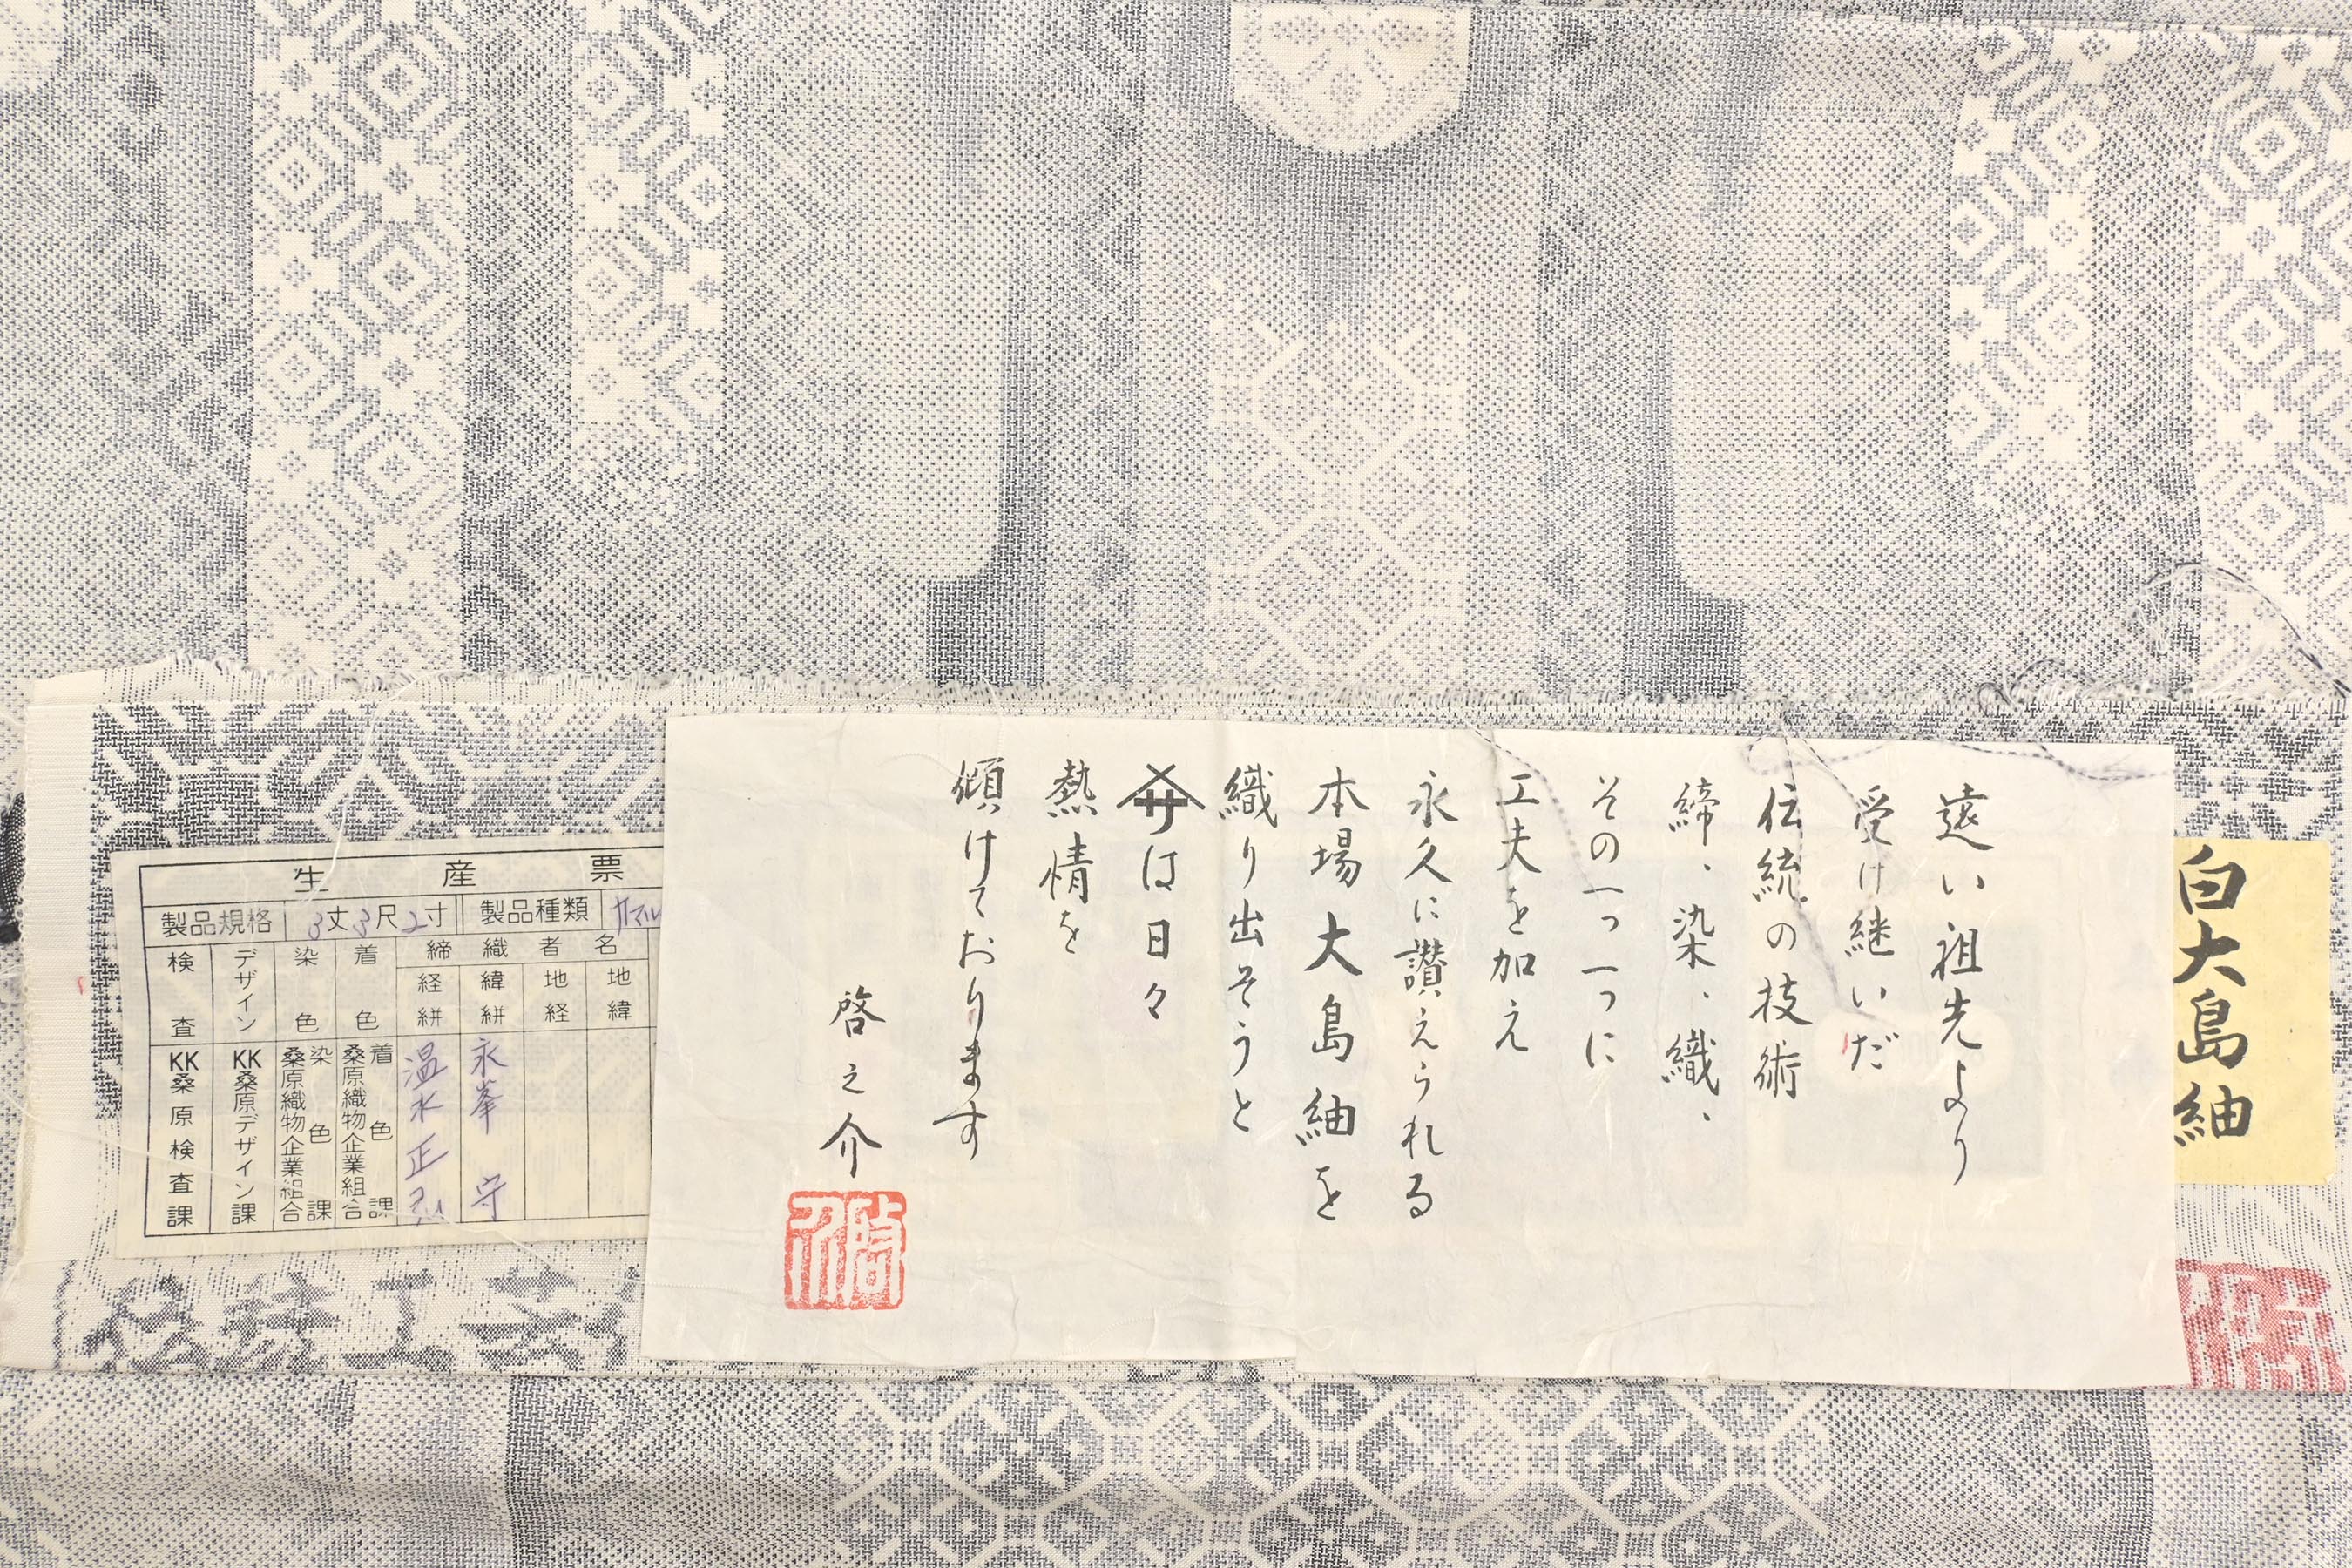 遠い祖先より
受け継いだ
伝統の技術
締、染、織、
その一つ一つに
工夫を加え
永久に讃えられる
本場大島紬を
織り出そうと
は日々
熱情を
傾けております
啓之介
白大島紬
生産票
製品規格 3丈3尺2寸 製品種類
検査 デザイン 染色 着色 締織者名
経絣 緯絣 地経 地緯
KK桑原検査課
KK桑原デザイン課
桑原織物企業組合 染色課
桑原織物企業組合 着色課
温水正
永峯 守
工芸